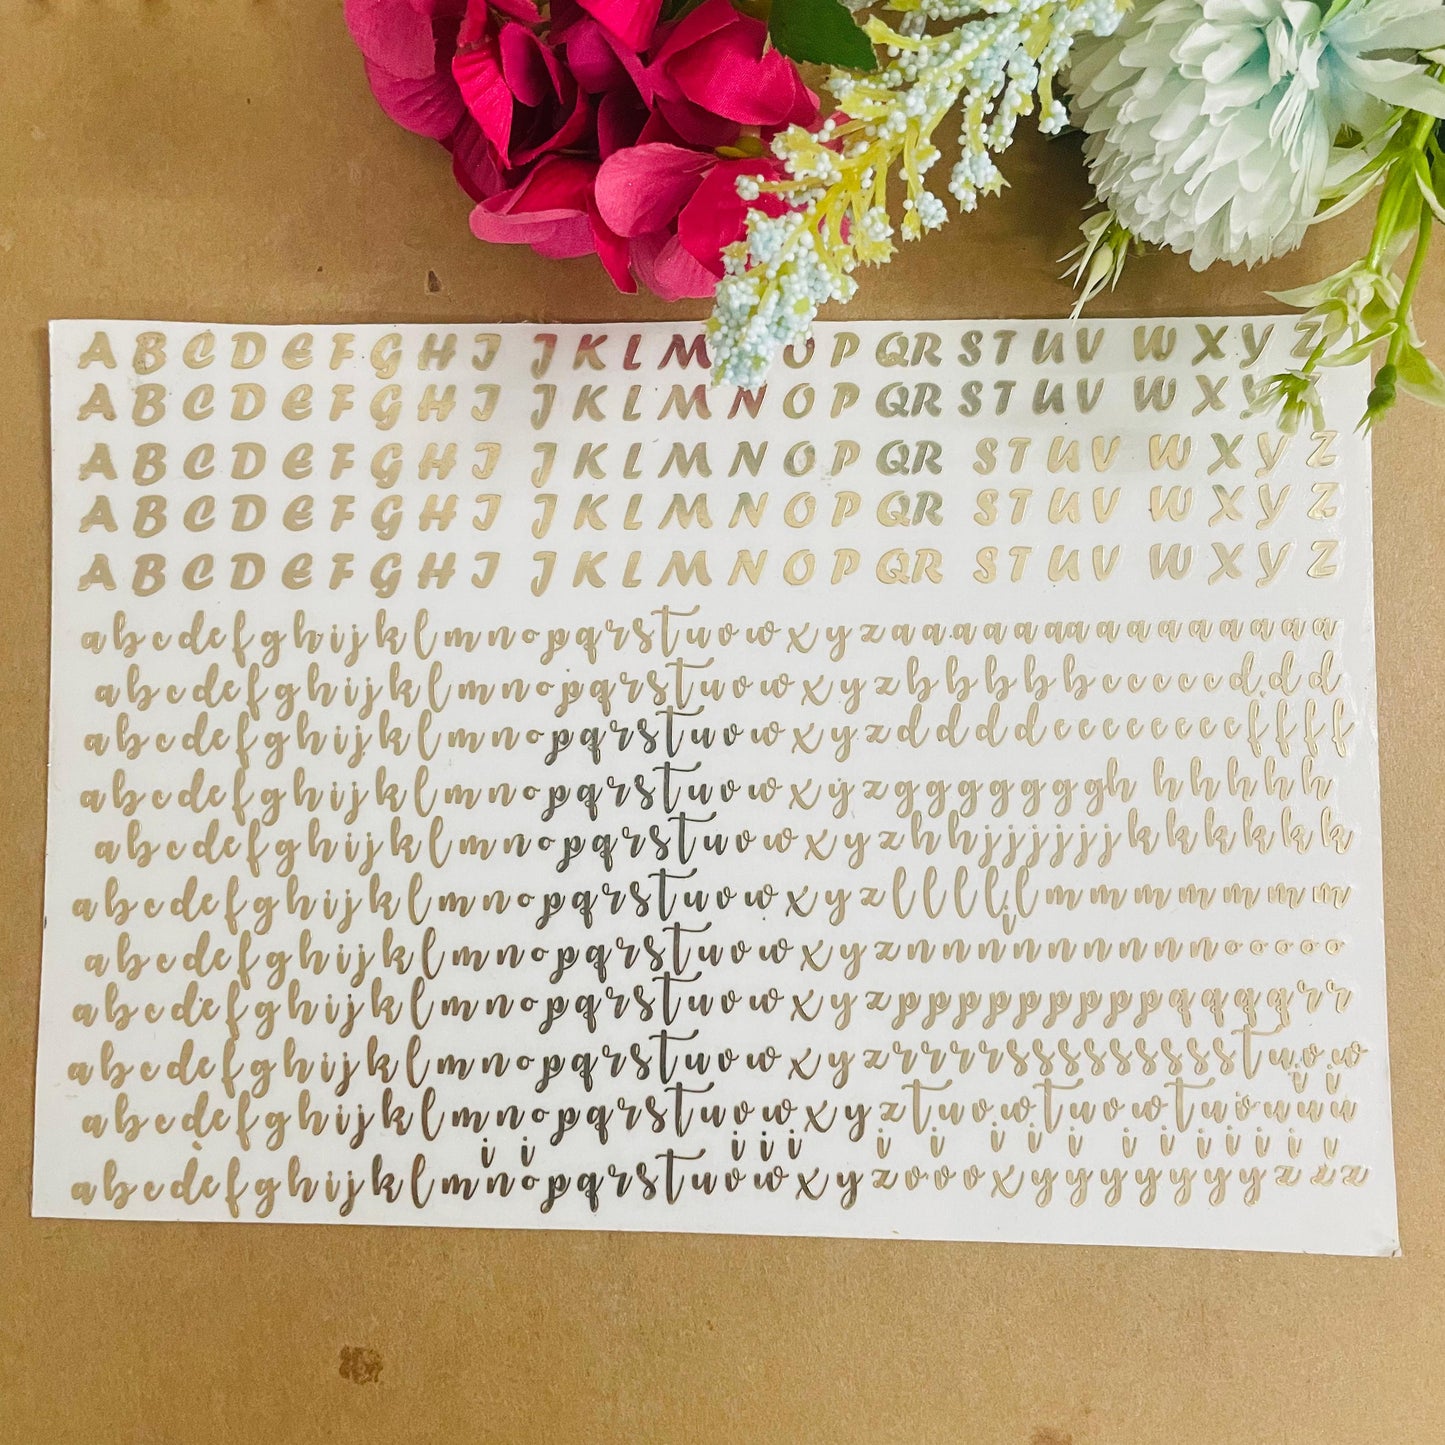 A B C D E F G H I J K L M O P Q R S T U V W X Y Z
A B C D E F G H I J K L M N O P Q R S T U V W X Y
A B C D E F G H I J K L M N O P Q R S T U V W X Y Z
A B C D E F G H I J K L M N O P Q R S T U V W X Y Z
A B C D E F G H I J K L M N O P Q R S T U V W X Y Z
a b c d e f g h i j k l m n o p q r s t u v w x y z a a a a a a a a a a a a a a a
a b c d e f g h i j k l m n o p q r s t u v w x y z b b b b b c c c c c d d d
a b c d e f g h i j k l m n o p q r s t u v w x y z d d d d d e e e e e e e e f f f f
a b c d e f g h i j k l m n o p q r s t u v w x y z g g g g g g g h h h h h h
a b c d e f g h i j k l m n o p q r s t u v w x y z h h j j j j j j k k k k k k
a b c d e f g h i j k l m n o p q r s t u v w x y z l l l l l m m m m m m m m
i
a b c d e f g h i j k l m n o p q r s t u v w x y z n n n n n n n n n n o o o o o
a b c d e f g h i j k l m n o p q r s t u v w x y z p p p p p p p p p q q q q r r
a b c d e f g h i j k l m n o p q r s t u v w x y z r r r r s s s s s s s s s t u v w
i i
a b c d e f g h i j k l m n o p q r s t u v w x y z t u v w t u v w t u v u u u
i i i i i i i i i i i i i i i i i
a b c d e f g h i j k l m n o p q r s t u v w x y z v v v x y y y y y y y z z z